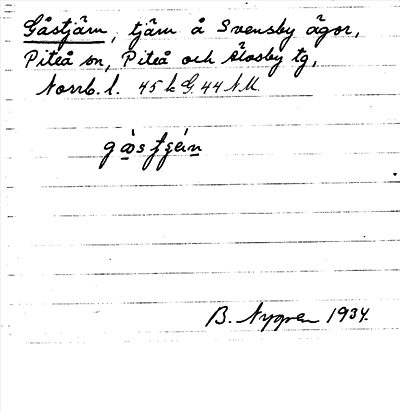 Gåstjärn, tjärn å Svensby ägor,
Piteå sn, Piteå och Älvsby tg,
Norrb. l. 45 k G, 44 N.M.
B. Nygren 1934.